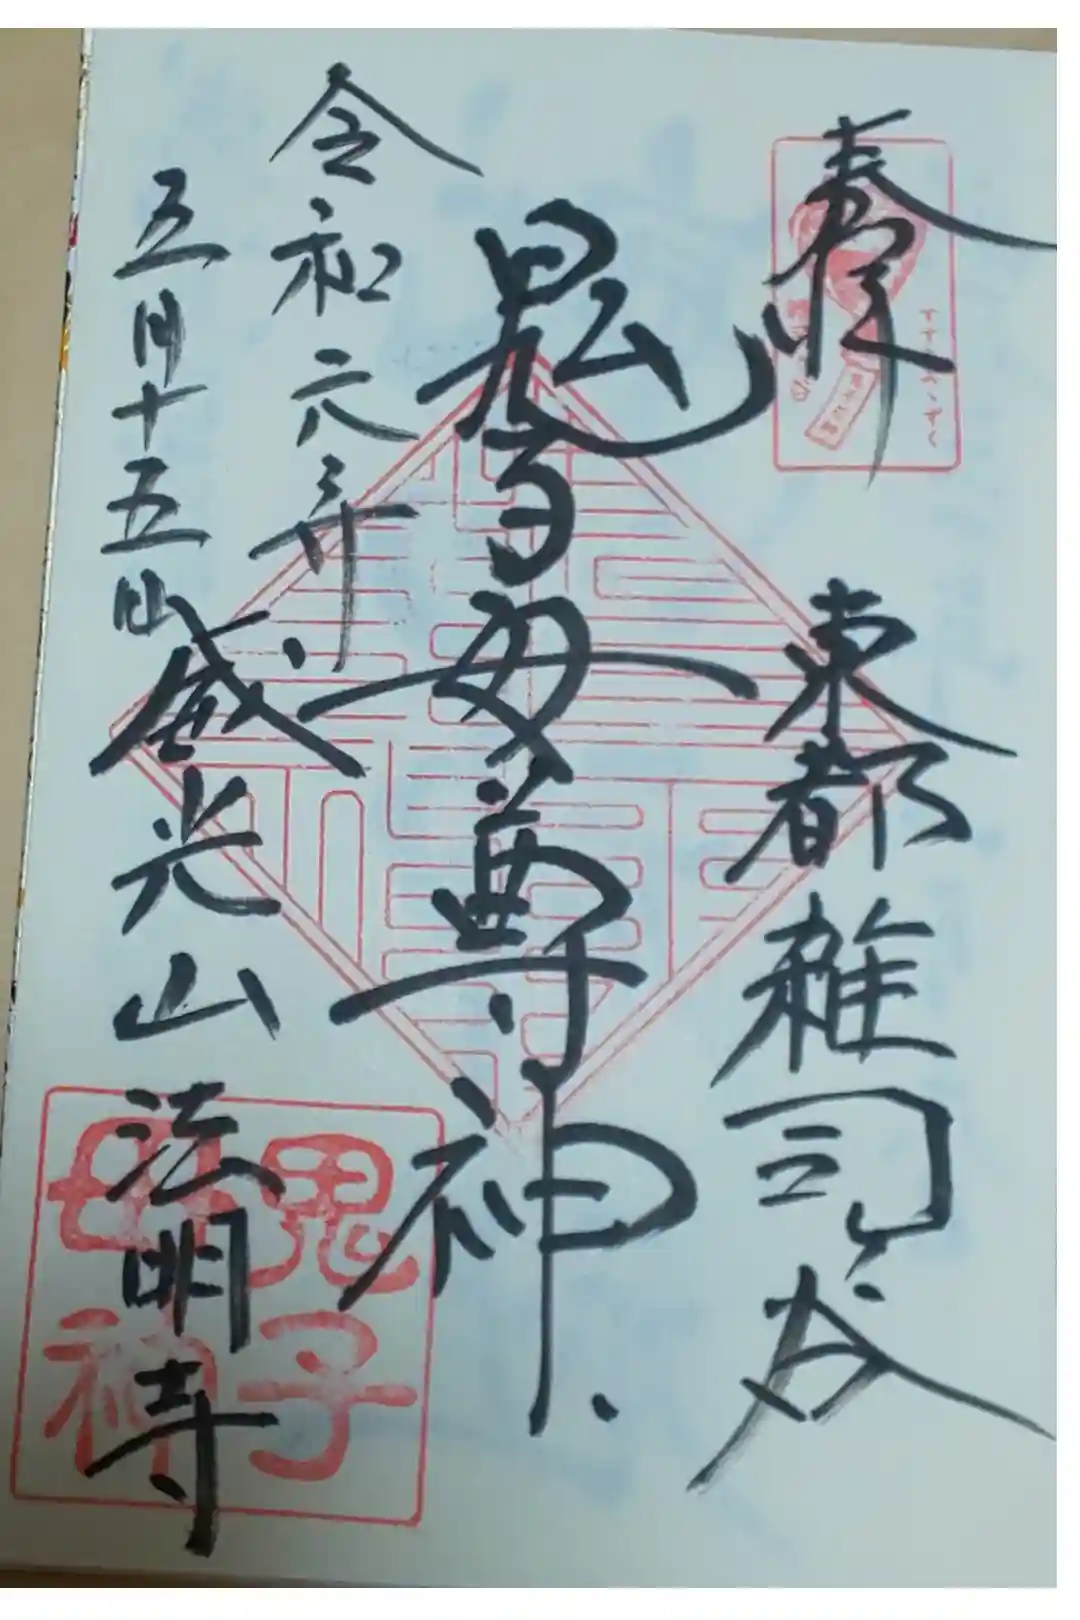 奉拝
東都雑司谷
鬼子母尊神
令和六年
五月十五日
威光山
法明寺
鬼子
母神